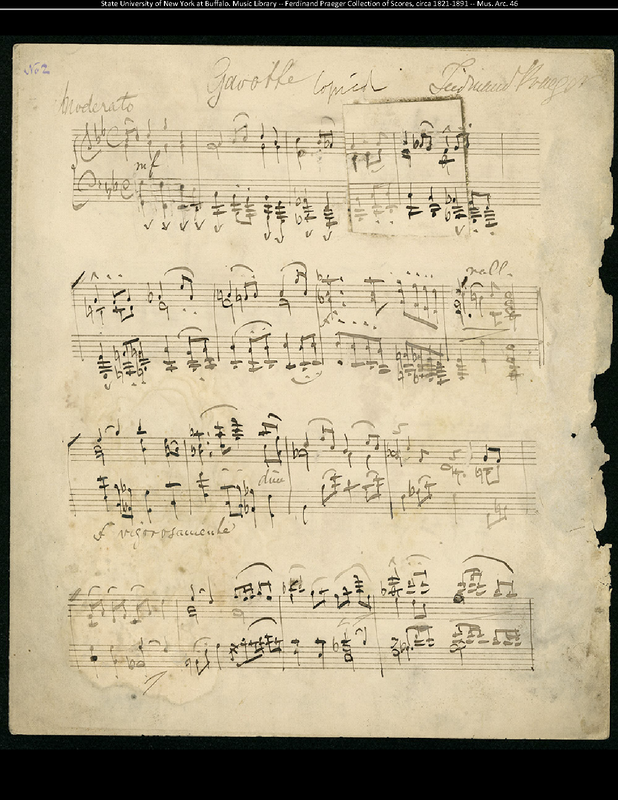 State University of New York at Buffalo. Music Library -- Ferdinand Praeger Collection of Scores, circa 1821-1891 -- Mus. Arc. 46
No 2
Gavotte copied Ferdinand Praeger
Moderato
mf
rall.
dim
f vigorosamente